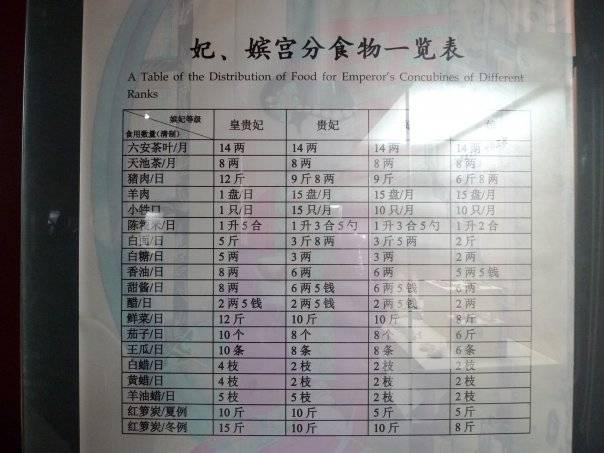 妃、嫔宫分食物一览表
A Table of the Distribution of Food for Emperor's Concubines of Different
Ranks
嫔妃等级
食用数量(清制) 皇贵妃 贵妃
六安茶叶/月 14两 14两 14两 14两
天池茶/月 8两 8两 8两 8两
猪肉/日 12斤 9斤8两 9斤 6斤8两
羊肉 1盘/日 15盘/月 15盘/月 15盘/月
小牲口 1只/日 15只/月 10只/月 10只/月
陈粳米/日 1升5合 1升3合5勺 1升3合5勺 1升2合
白面/日 5斤 3斤8两 3斤5两 2斤
白糖/日 5两 3两 3两 2两
香油/日 8两 6两 6两 5两5钱
甜酱/日 8两 6两5钱 6两5钱 6两
醋/日 2两5钱 2两5钱 2两5钱 2两
鲜菜/日 12斤 10斤 10斤 8斤
茄子/日 10个 8个 8个 6斤
王瓜/日 10条 8条 8条 6条
白蜡/日 4枝 2枝 2枝 2枝
黄蜡/日 4枝 2枝 2枝 2枝
羊油蜡/日 5枝 5枝 2枝 2枝
红箩炭/夏例 10斤 10斤 5斤 5斤
红箩炭/冬例 15斤 10斤 10斤 8斤